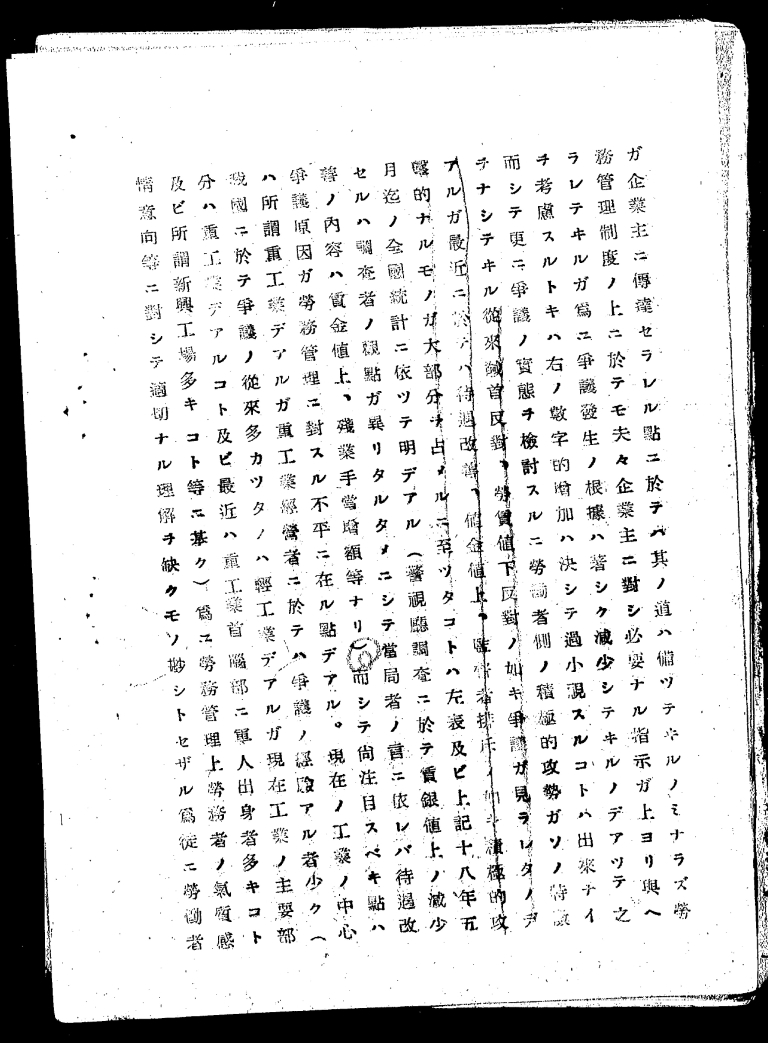 ガ企業主ニ傳達セラレル點ニ於テハ其ノ道ハ備ツテキルノミナラズ勞
務管理制度ノ上ニ於テモ夫々企業主ニ對シ必要ナル指示ガ上ヨリ與ヘ
ラレテキルガ爲ニ爭議發生ノ根據ハ著シク減少シテキルノデアツテ之
ヲ考慮スルトキハ右ノ數字的增加ハ決シテ過小視スルコトハ出來ナイ
而シテ更ニ爭議ノ實態ヲ檢討スルニ勞働者側ノ積極的攻勢ガソノ特徵
ヲナシテキル從來馘首反對、勞賃値下反對ノ如キ爭議ガ見ラレタノデ
アルガ最近ニ於テハ待遇改善、値金値上、監督者排斥ノ如キ積極的攻
擊的ナルモノガ大部分ヲ占メルニ至ツタコトハ左表及ビ上記十八年五
月迄ノ全國統計ニ依ツテ明デアル(警視廳調査ニ於テ賃銀値上ノ減少
セルハ調査者ノ觀點ガ異リタルタメニシテ當局者ノ言ニ依レバ待遇改
善ノ內容ハ賃金値上、殘業手當增額等ナリ)而シテ尙注目スベキ點ハ
爭議原因ガ勞務管理ニ對スル不平ニ在ル點デアル。現在ノ工業ノ中心
ハ所謂重工業デアルガ重工業經營者ニ於テハ爭議ノ經驗アル者少ク(
我國ニ於テ爭議ノ從來多カツタノハ輕工業デアルガ現在工業ノ主要部
分ハ重工業デアルコト及ビ最近ハ重工業首腦部ニ軍人出身者多キコト
及ビ所謂新興工場多キコト等ニ基ク)爲ニ勞務管理上勞務者ノ氣質感
情意向等ニ對シテ適切ナル理解ヲ缺クモノ尠シトセザル爲徒ニ勞働者